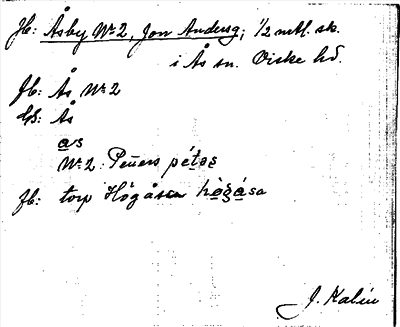 Jb: Åsby Nr 2, Jon Andersg; 1/2 mtl. sk.
i Ås sn. Viske hd.
Jb: Ås Nr 2
Ås
as
Nr 2: Peners pétəs
Jb: torp Högåsen högåsa
J. Kalén